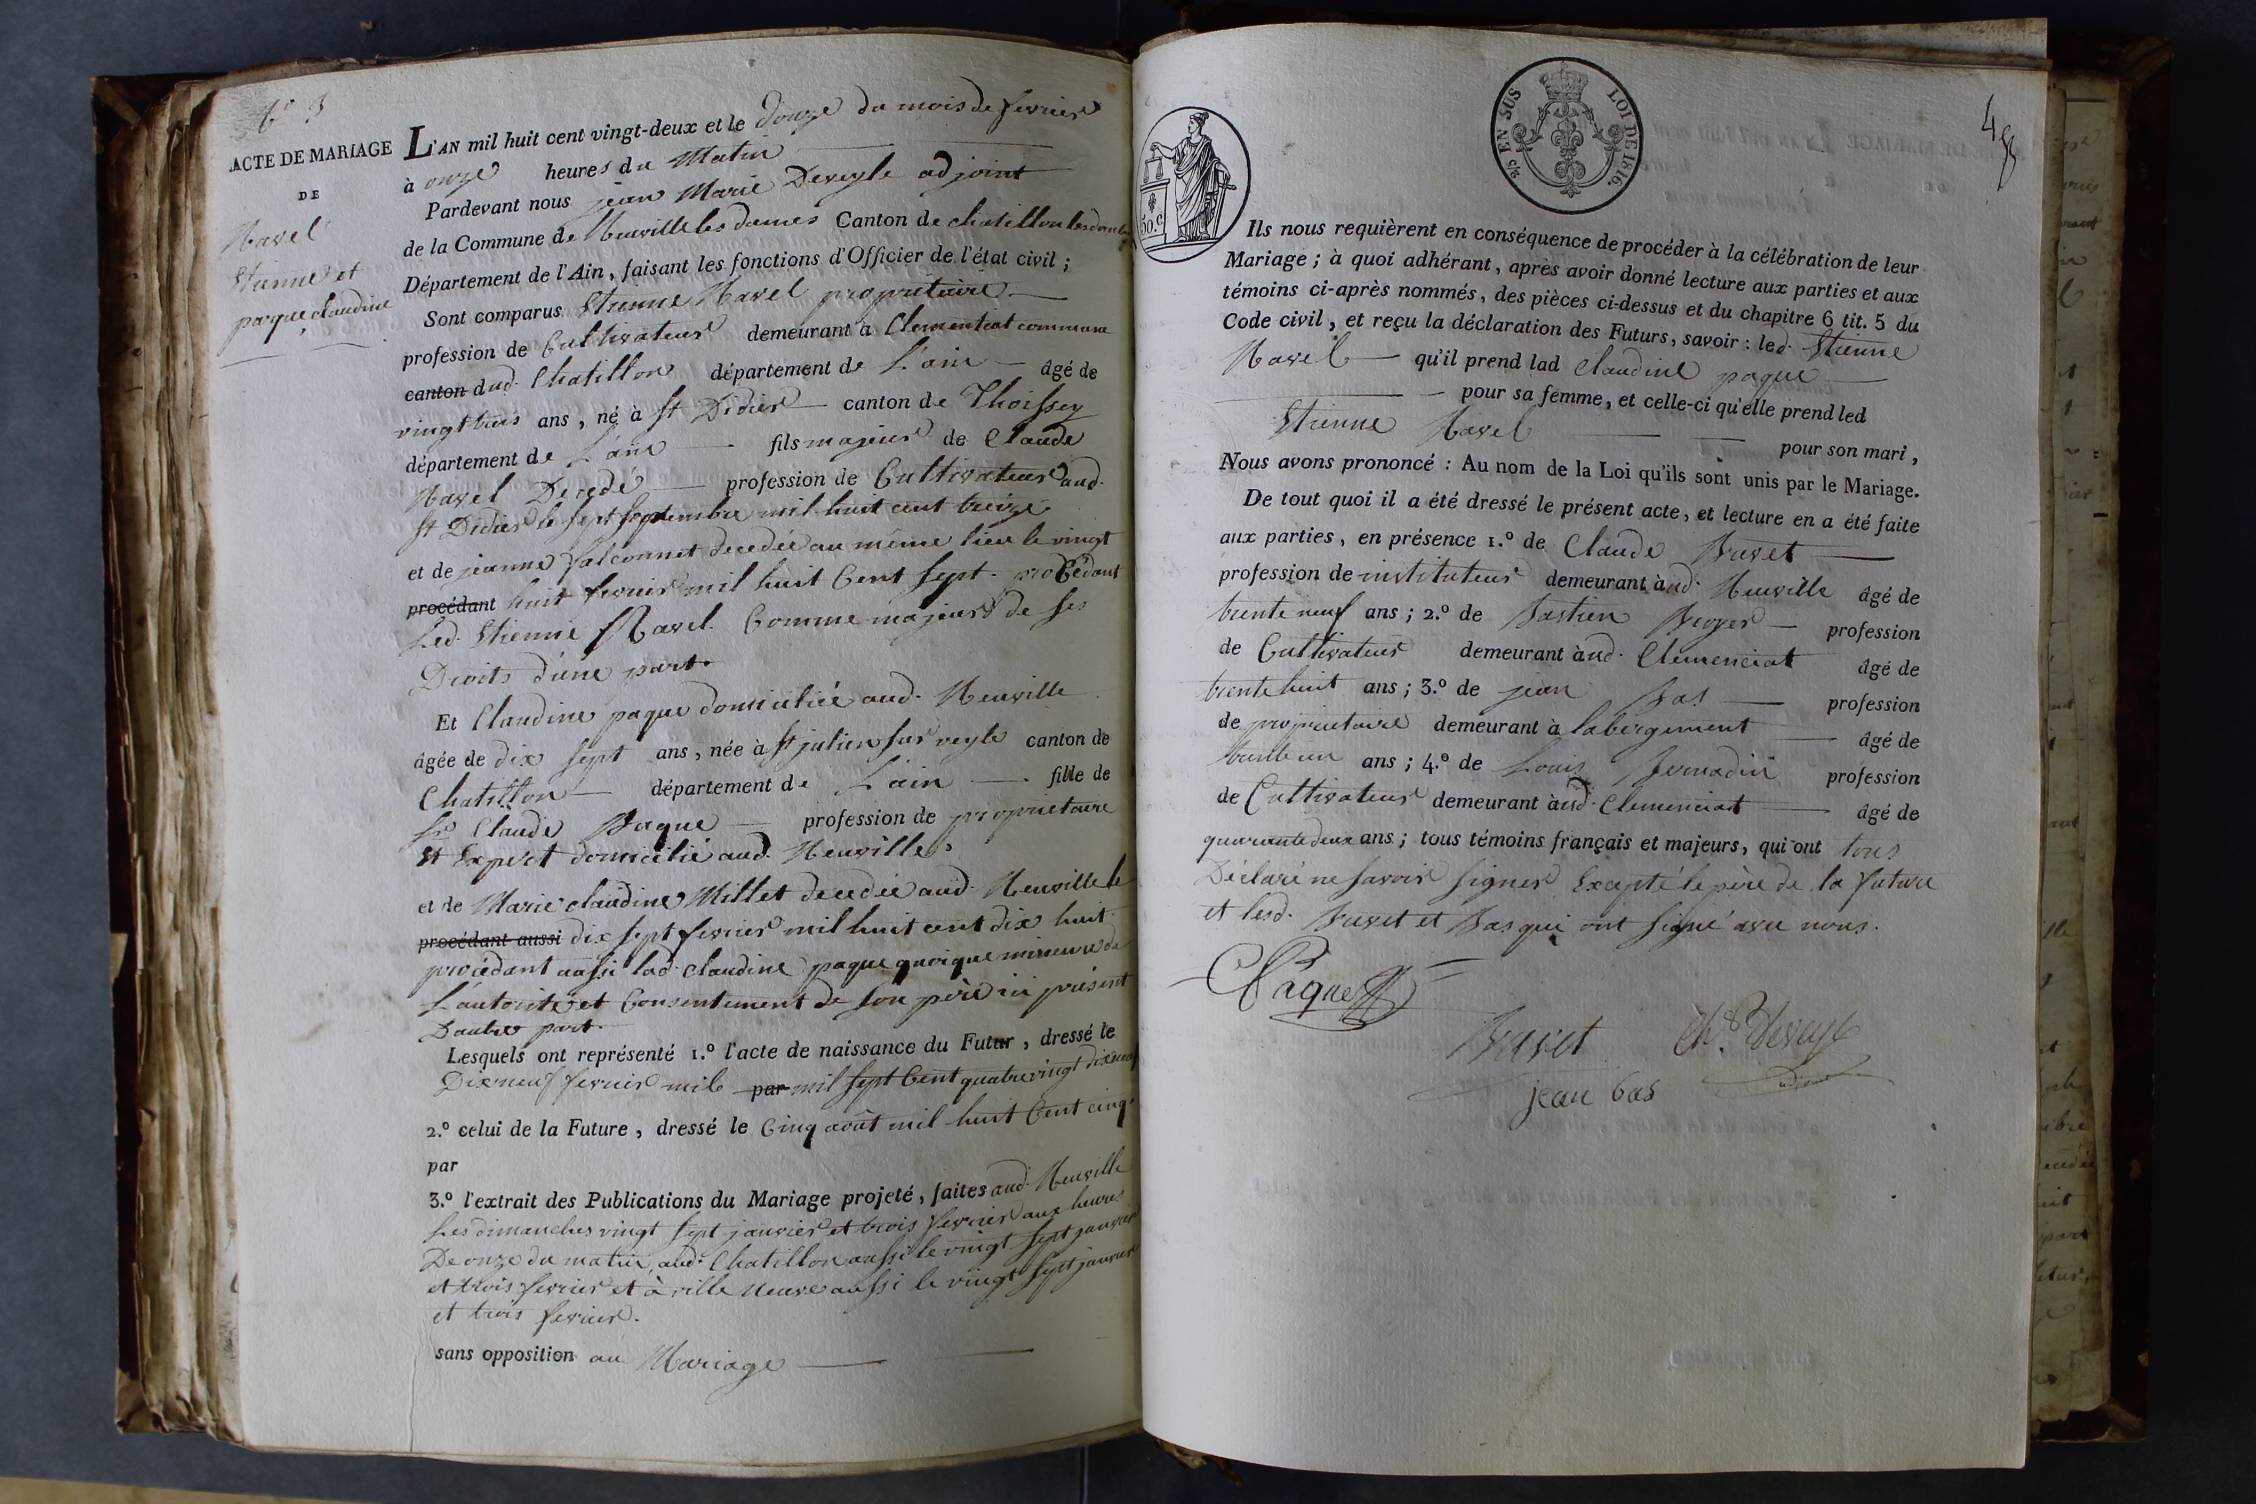 N.° 3
ACTE DE MARIAGE
DE
Ravel
Etienne et
paque claudine
L'AN mil huit cent vingt-deux et le douze du mois de fevrier
à onze heures du Matin
Pardevant nous jean Marie Deveyle adjoint
de la Commune de Neuville les dames Canton de chatillon les dombes
Département de l'Ain, faisant les fonctions d'Officier de l'état civil ;
Sont comparus Etienne Ravel proprietaire
profession de Cultivateur demeurant à Clementiat commune
canton dud. Chatillon département de L'ain âgé de
vingt trois ans, né à St Didier canton de Thoissey
département de L'ain fils majeur de Claude
Ravel Decedé profession de Cultivateur aud.
St Didier le sept septembre mil huit cent treize
et de jeanne falconnet decedée au même lieu le vingt
procédant huit fevrier mil huit Cent sept. procédant
Led. Etienne Ravel Comme majeur de ses
Droits d'une part.
Et Claudine paque domiciliée aud. Neuville
âgée de dix sept ans, née à st julien sur veyle canton de
Chatillon département de L'ain fille de
sr Claude Paque profession de proprietaire
Et Expert domicilié aud. Neuville.
et de Marie claudine Millet decedée aud. Neuville le
procédant aussi dix sept fevrier mil huit cent dix huit.
procédant aussi lad. claudine paque quoique mineure de
L'autorité et Consentement de son père ici présent
D'autre part.
Lesquels ont représenté 1.° l'acte de naissance du Futur, dressé le
Dix neuf fevrier mil par mil sept Cent quatre vingt dix neuf
2.° celui de la Future, dressé le Cinq août mil huit Cent cinq.
par
3.° l'extrait des Publications du Mariage projeté, faites aud. Neuville
Les dimanches vingt sept janvier et trois fevrier aux heures
De onze du matin, aud. Chatillon aussi le vingt sept janvier
et trois fevrier et à ville neuve aussi le vingt sept janvier
et trois fevrier.
sans opposition au Mariage
50.c
EN SUS LOI DE 1816.
Ils nous requièrent en conséquence de procéder à la célébration de leur
Mariage ; à quoi adhérant, après avoir donné lecture aux parties et aux
témoins ci-après nommés, des pièces ci-dessus et du chapitre 6 tit. 5 du
Code civil, et reçu la déclaration des Futurs, savoir : led. Etienne
Ravel qu'il prend lad claudine paque
pour sa femme, et celle-ci qu'elle prend led
Etienne Ravel pour son mari,
Nous avons prononcé : Au nom de la Loi qu'ils sont unis par le Mariage.
De tout quoi il a été dressé le présent acte, et lecture en a été faite
aux parties, en présence 1.° de Claude Buvet
profession de instituteur demeurant àud. Neuville âgé de
trente neuf ans ; 2.° de Bastien Broyer profession
de Cultivateur demeurant àud. Clemenciat âgé de
trente huit ans ; 3.° de jean Bas profession
de proprietaire demeurant à labergement âgé de
trente un ans ; 4.° de Louis profession
de Cultivateur demeurant àud. Clemenciat âgé de
quarante deux ans ; tous témoins français et majeurs, qui ont tous
Déclaré ne savoir signer Excepté le père de la future
et lesd. Buvet et Bas qui ont signé avec nous.
C Paque
Buvet
Deveyle
adjoint
jean bas